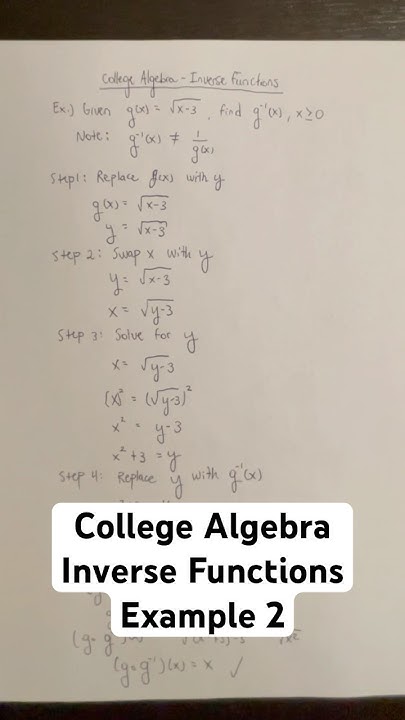 College Algebra - Inverse Functions
Ex.) Given g(x) = √x-3, find g⁻¹(x), x≥0
Note: g⁻¹(x) ≠ 1/g(x)
Step 1: Replace g(x) with y
g(x) = √x-3
y = √x-3
Step 2: Swap x with y
y = √x-3
x = √y-3
Step 3: Solve for y
x = √y-3
(x)² = (√y-3)²
x² = y-3
x²+3 = y
Step 4: Replace y with g⁻¹(x)
College Algebra
Inverse Functions
Example 2
(g∘g⁻¹)(x) = x ✓